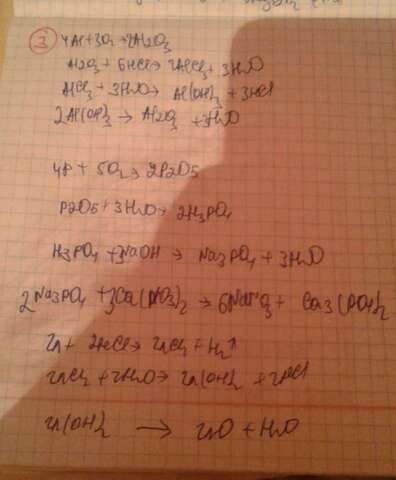 3
4Al+3O2→2Al2O3
Al2O3 + 6HCl→ 2AlCl3+ 3H2O
AlCl3 + 3H2O→ Al(OH)3 + 3HCl
2Al(OH)3 → Al2O3 +3H2O
4P + 5O2→ 2P2O5
P2O5+3H2O→ 2H3PO4
H3PO4 +3NaOH → Na3PO4 + 3H2O
2Na3PO4 +3Ca(NO3)2 → 6NaNO3+ Ca3(PO4)2
Zn+ 2HCl→ ZnCl2 + H2↑
ZnCl2 + 2H2O→ Zn(OH)2 + 2HCl
Zn(OH)2 → ZnO + H2O